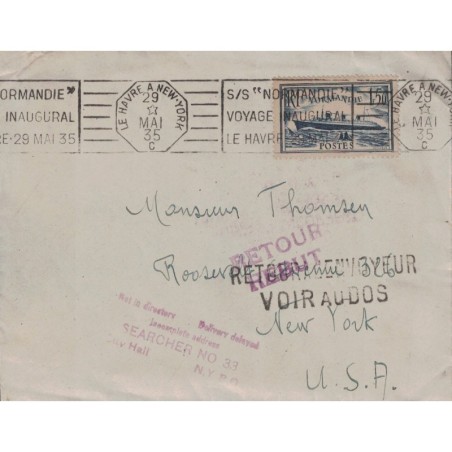 ORMANDIE"
INAUGURAL
RE·29 MAI 35
LE HAVRE A NEW-YORK
29
MAI
35
C
S/S "NORMANDIE"
VOYAGE INAUGURAL
LE HAVRE
NORMANDIE
1,50
POSTES
LE HAVRE A NEW-YORK
29
MAI
35
C
Monsieur Thomsen
RETOUR
REBUT
RETOUR A L'ENVOYEUR
VOIR AU DOS
New York
U.S.A.
Not in directory
Delivery delayed
Incomplete address
SEARCHER NO 33
City Hall
N.Y.P.O.